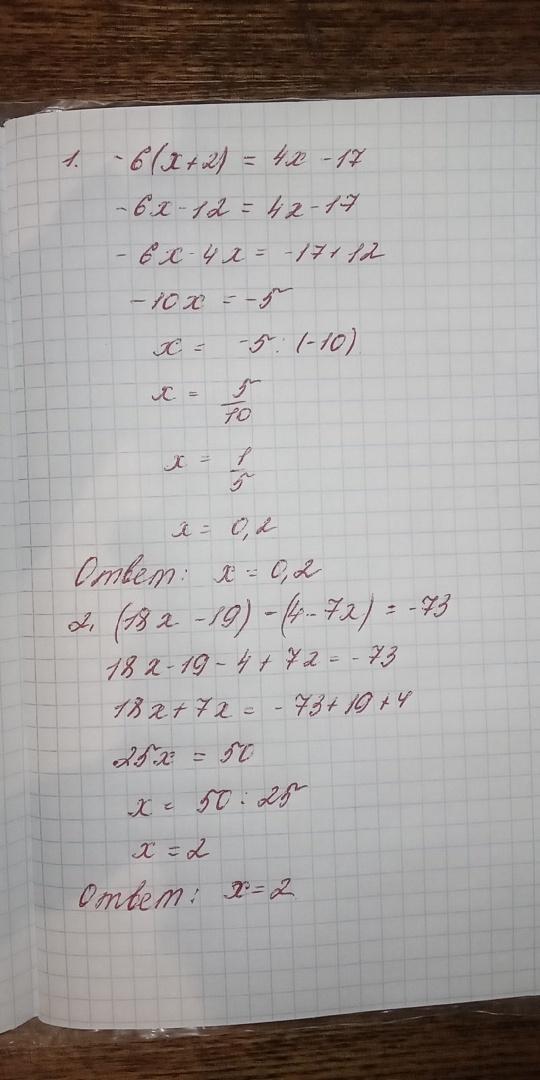 1. -6(x+2) = 4x -17
-6x-12 = 4x-17
-6x-4x = -17+12
-10x = -5
x = -5 : (-10)
x = 5/10
x = 1/5
x = 0,2
Ответ: x = 0,2
2. (18x -19) -(4-7x) = -73
18x-19-4+7x = -73
18x+7x = -73+19+4
25x = 50
x = 50 : 25
x = 2
Ответ: x=2